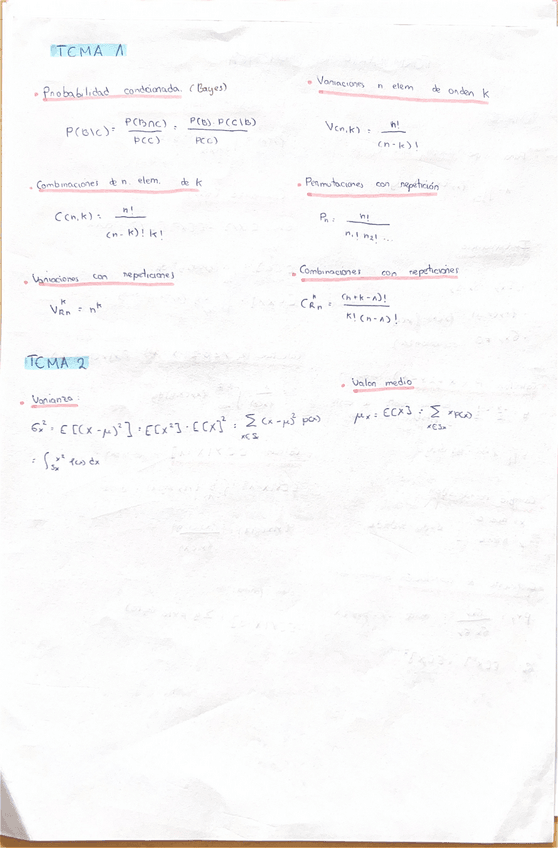 TEMA 1
• Probabilidad condicionada. (Bayes)
P(B|C) = P(B∩C) / P(C) = P(B)·P(C|B) / P(C)
• Variaciones n elem de orden k
V(n,k) = n! / (n-k)!
• Combinaciones de n elem. de k
C(n,k) = n! / (n-k)! k!
• Permutaciones con repetición
Pn = n! / n1! n2! ...
• Variaciones con repeticiones
V^k_Rn = n^k
• Combinaciones con repeticiones
C^k_Rn = (n+k-1)! / k! (n-1)!
TEMA 2
• Varianza
σx² = E[(x-μ)²] = E[x²] - E[x]² = Σ_{x∈Sx} (x-μ)² p(x)
= ∫_{Sx} x² f(x) dx
• Valor medio
μx = E[x] = Σ_{x∈Sx} x p(x)